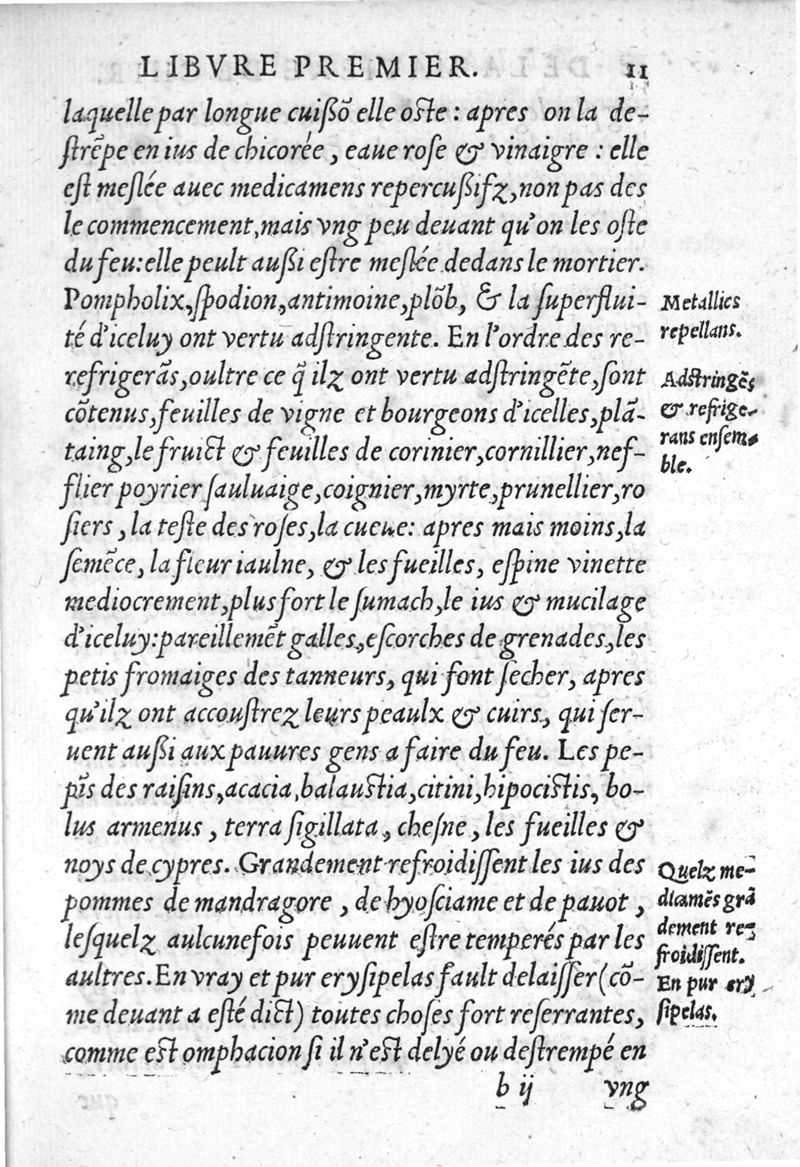 LIBVRE PREMIER. 11
laquelle par longue cuißõ elle oste : apres on la de-
strẽpe en ius de chicorée, eaue rose & vinaigre : elle
est meslée auec medicamens repercußifz, non pas des
le commencement, mais vng peu deuant qu'on les oste
du feu: elle peult außi estre meslée dedans le mortier.
Pompholix, spodion, antimoine, plõb, & la superflui-
té d'iceluy ont vertu adstringente. En l'ordre des re-
refrigerãs, oultre ce q̃ ilz ont vertu adstringẽte, sont
cõtenus, feuilles de vigne et bourgeons d'icelles, plã-
taing, le fruict & feuilles de corinier, cornillier, nef-
flier poyrier sauluaige, coignier, myrte, prunellier, ro
siers, la teste des roses, la cueue: apres mais moins, la
semẽce, la fleur iaulne, & les fueilles, espine vinette
mediocrement, plus fort le sumach, le ius & mucilage
d'iceluy: pareillemẽt galles, escorches de grenades, les
petis fromaiges des tanneurs, qui font secher, apres
qu'ilz ont accoustrez leurs peaulx & cuirs, qui ser-
uent außi aux pauures gens a faire du feu. Les pe-
pĩs des raisins, acacia, balaustia, citini, hipocistis, bo-
lus armenus, terra sigillata, chesne, les fueilles &
noys de cypres. Grandement refroidissent les ius des
pommes de mandragore, de hyosciame et de pauot,
lesquelz aulcunefois peuuent estre temperés par les
aultres. En vray et pur erysipelas fault delaisser (cõ-
me deuant a esté dict) toutes choses fort reserrantes,
comme est omphacion si il n'est delyé ou destrempé en
b ij vng
Metallics
repellans.
Adstringẽs
& refrige-
rans ensem-
ble.
Quelz me-
dicamẽs grã
dement re-
froidissent.
En pur ery
sipelas.